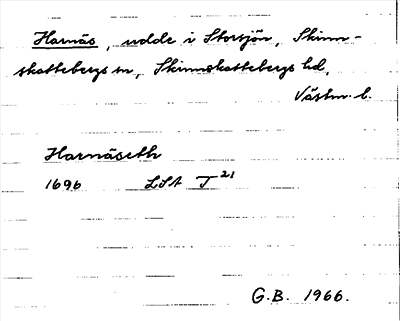 Harnäs, udde i Storsjön, Skinn-
skattebergs sn, Skinnskattebergs hd,
Västm. l.
Harnäseth
1696 LSA T 21
G.B. 1966.